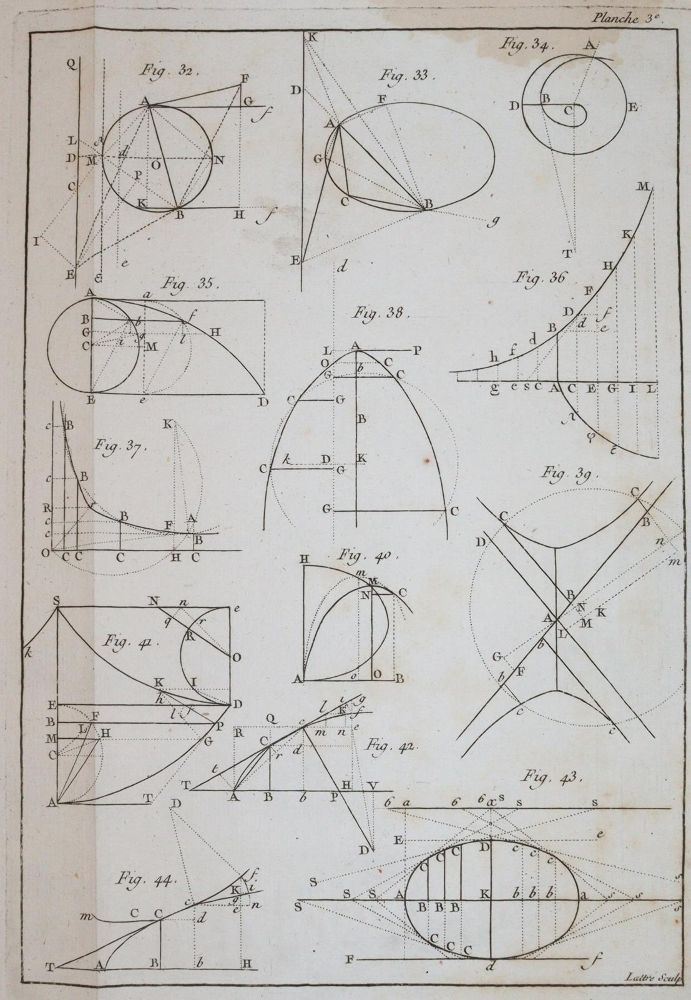 Planche 3e.
Fig. 32.
Q
F
A
G
f
L
D
M
d
O
N
P
C
K
B
H
f
I
E
e
Fig. 33
K
D
F
A
G
C
B
g
E
d
Fig. 34
A
D
B
C
E
T
Fig. 35
A
a
B
b
f
G
g
H
C
i
M
l
E
e
D
Fig. 36
M
K
H
F
D
f
B
d
e
h
f
d
g
e
s
C
A
C
E
G
I
L
Fig. 37
c
B
K
c
B
R
r
c
B
F
A
c
B
O
C
C
C
H
C
Fig. 38
L
A
P
O
C
G
b
C
C
G
B
C
k
D
G
K
G
C
Fig. 39
C
C
B
D
n
m
B
N
K
A
L
M
G
b
F
b
c
c
Fig. 40
H
m
M
N
C
A
o
O
B
Fig. 41
S
N
n
e
q
r
R
O
k
K
I
h
D
E
l
f
B
F
P
L
M
H
G
C
A
T
Fig. 42
l
i
g
K
f
R
Q
c
m
n
e
C
d
t
r
T
A
B
b
P
H
V
D
Fig. 43
6
a
6
6
x
s
s
s
E
D
e
C
C
C
c
c
c
S
S
S
S
A
K
a
B
B
B
b
b
b
s
s
s
s
C
C
C
F
d
f
Fig. 44
D
f
K
i
g
m
C
C
c
d
e
n
T
A
B
b
H
Lattre Sculp.